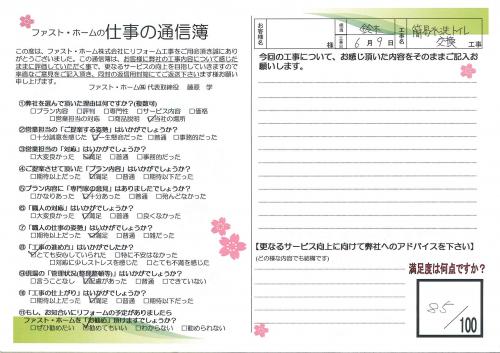 ファスト・ホームの仕事の通信簿
この度は、ファスト・ホーム株式会社にリフォーム工事をご用命頂き誠にあり
がとうございました。この通信簿は、お客様に弊社の工事内容について感じた
ままに評価していただく事で、更なるサービスの向上を目指していきますので
率直なご意見をご記入頂き、同封の返信用封筒にてご返送下さいます様お願い
申し上げます。
ファスト・ホーム㈱ 代表取締役 藤原 学
①弊社を選んで頂いた理由は何ですか?(複数可)
□プラン内容 □評判 □専門性 □サービス内容 □価格
□営業担当の対応 □商品説明 □当社の場所
②営業担当の「ご提案する姿勢」はいかがでしょうか?
□十分誠意を感じた □一生懸命だった □普通 □事務的だった
③営業担当の「対応」はいかがでしょうか?
□大変良かった □満足 □普通 □事務的だった
④ご提案させて頂いた「プラン内容」はいかがでしたか?
□期待以上だった □満足 □普通 □期待以下だった
⑤プラン内容に「専門家の意見」はありましたでしょうか?
□かなりあった □十分あった □普通 □殆んどなかった
⑥「職人の対応」はいかがでしたでしょうか?
□大変良かった □満足 □普通 □良くなかった
⑦「職人の仕事の姿勢」はいかがでしたでしょうか?
□期待以上だった □満足 □普通 □雑だった
⑧「工事の進め方」はいかがでしたか?
□とても安心していられた □特に不安はなかった
□対応に少しストレスを感じた □とても不満を感じた
⑨現場の「管理状況(整理整頓等)」はいかがでしょうか?
□言うことなし □配慮があった □普通 □できていない
⑩「工事の仕上がり」はいかがでしょうか?
□期待以上だった □満足 □普通 □期待以下だった
⑪もし、お知合いにリフォームの予定がありましたら
ファスト・ホームを「お勧め」頂けますでしょうか?
□ぜひ勧めたい □勧めてもいい □わからない □勧められない
お客様名
様
6月9日
工事名
簡易水洗トイレ
交換
工事
今回の工事について、お感じ頂いた内容をそのままご記入お
願いします。
【更なるサービス向上に向けて弊社へのアドバイスを下さい】
(どの様な内容でも結構です)
満足度は何点ですか?
85/100